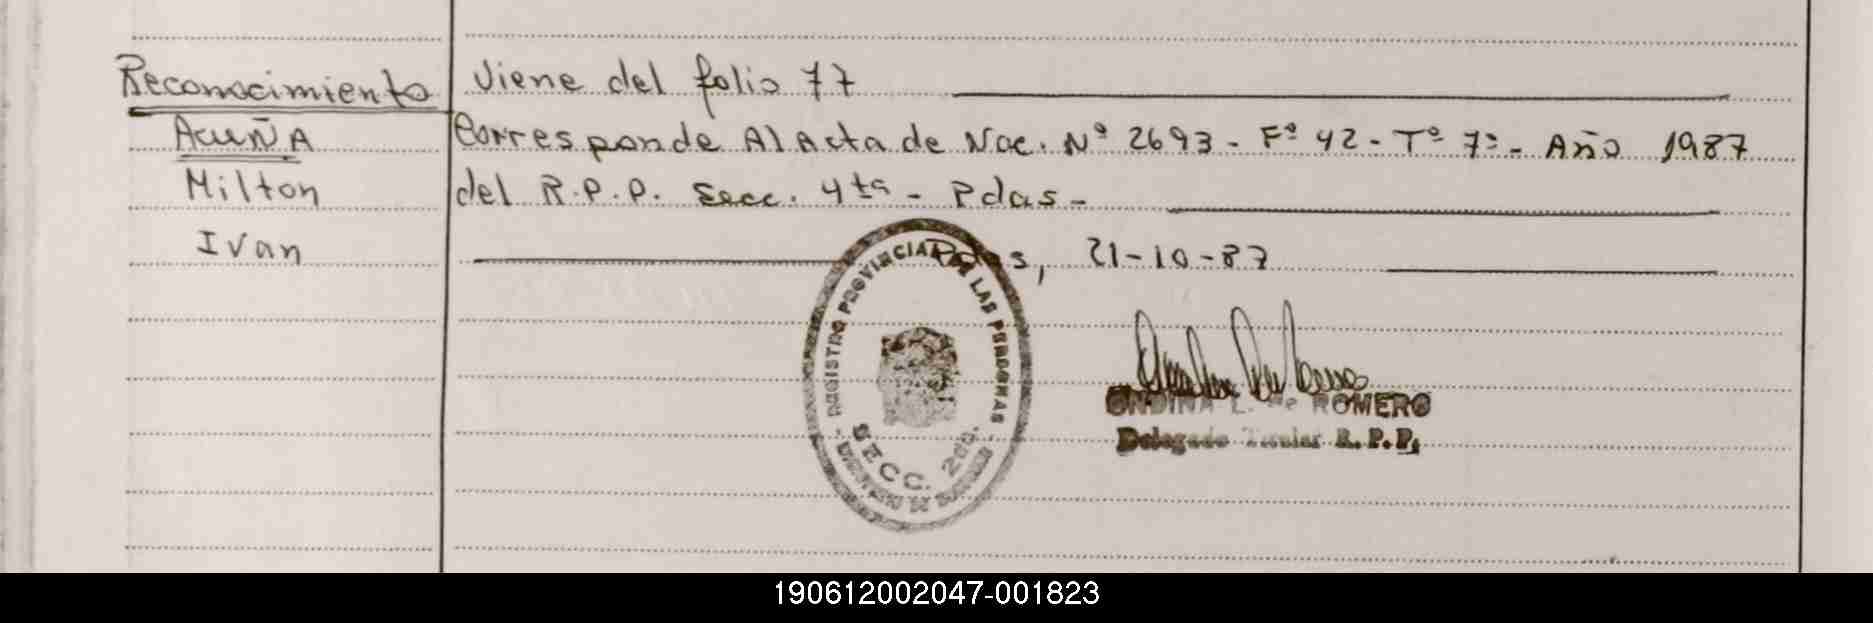 Reconocimiento Viene del folio 77
ACUÑA Corresponde Al Acta de Nac. Nº 2693 - Fº 42 - Tº 7º - Año 1987
Milton del R.P.P. Secc. 4ta - Pdas -
Ivan Pdas, 21-10-87
REGISTRO PROVINCIAL DE LAS PERSONAS
SECC. 2da.
ONDINA L. de ROMERO
Delegado Titular R. P. P.
190612002047-001823